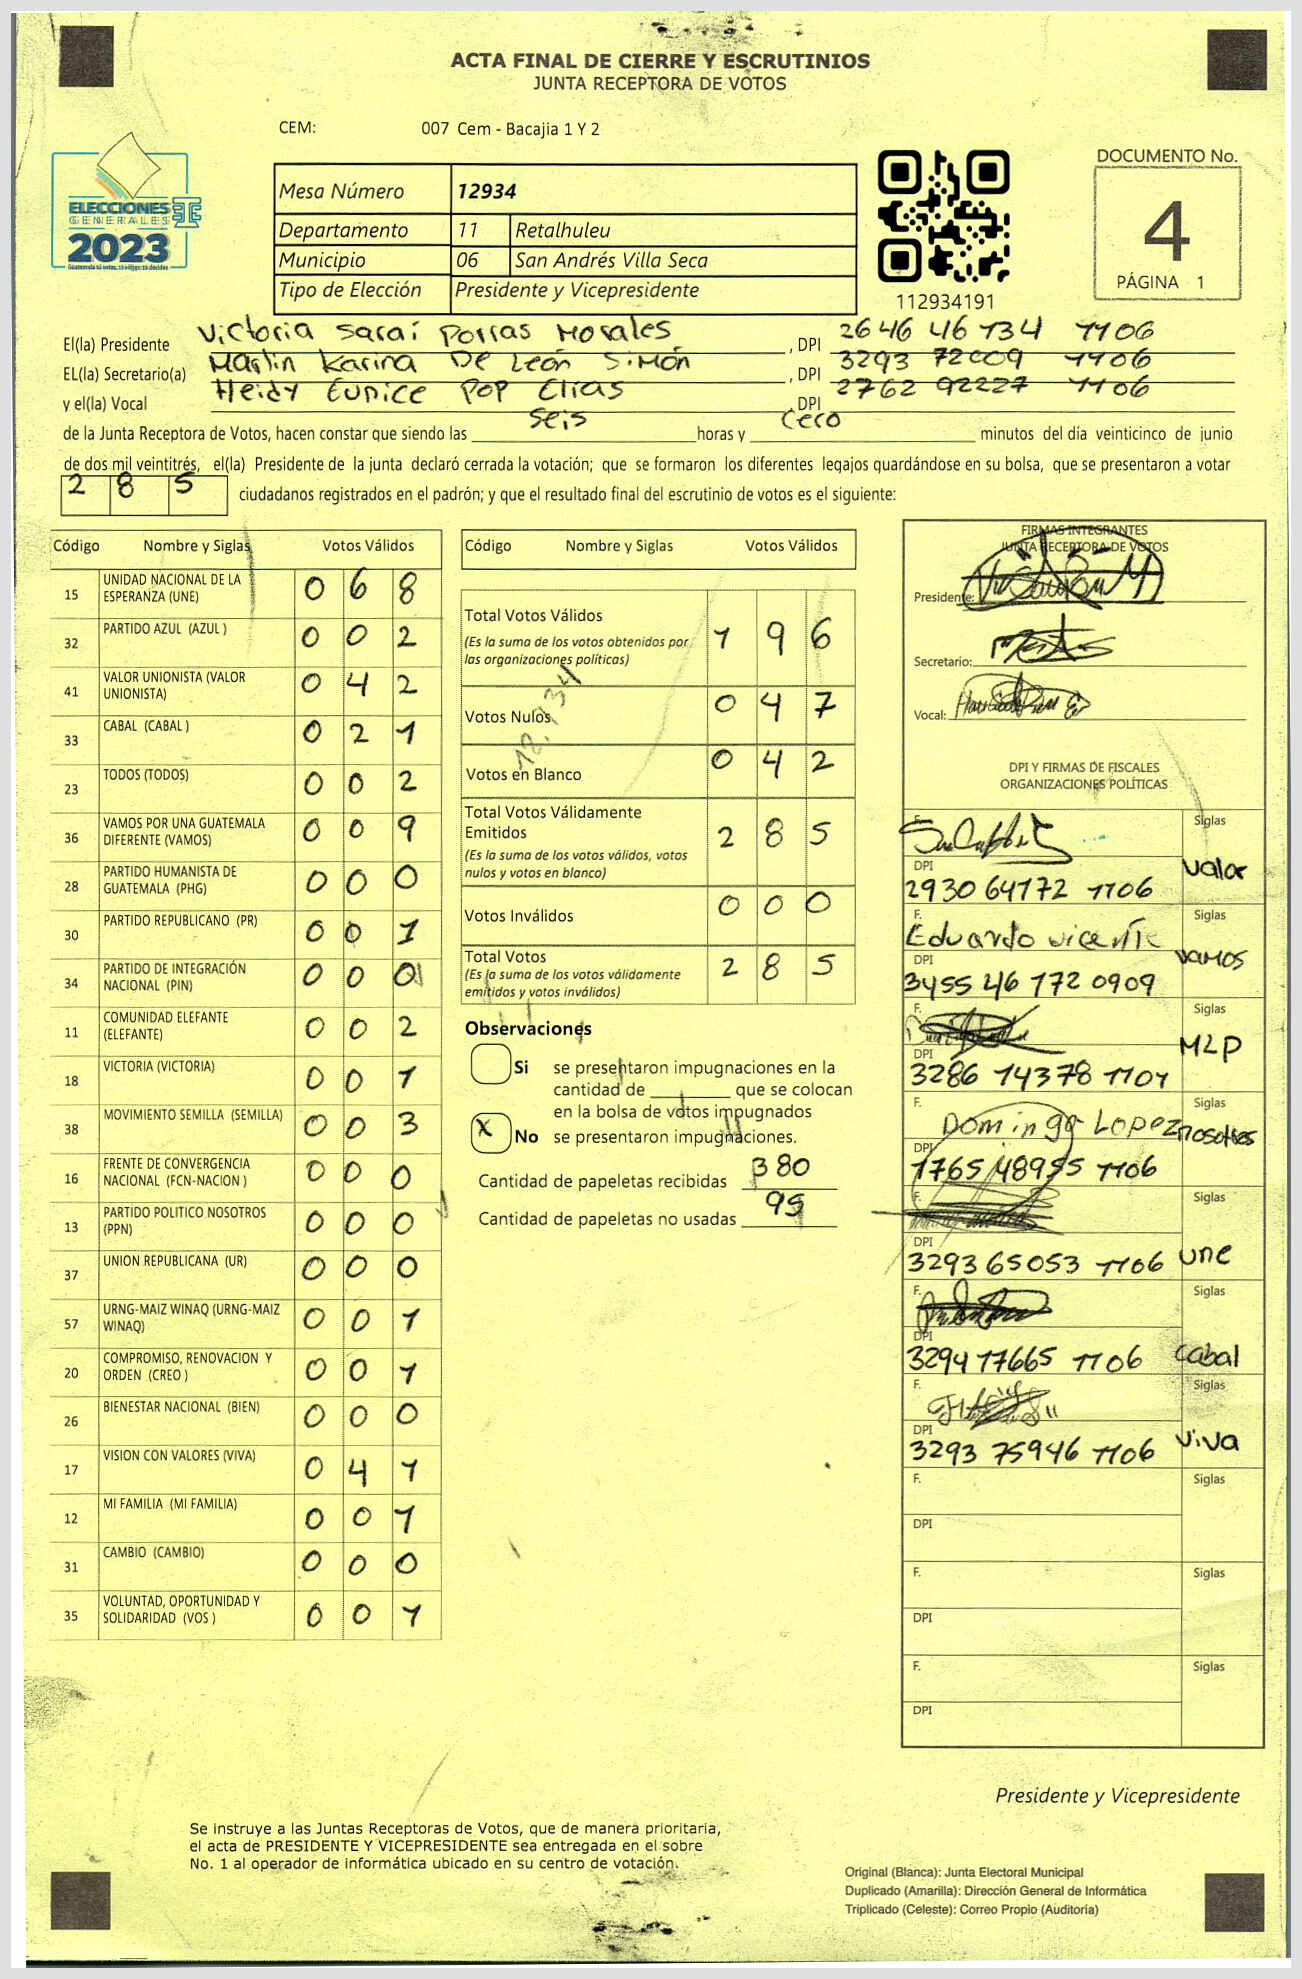 ACTA FINAL DE CIERRE Y ESCRUTINIOS
JUNTA RECEPTORA DE VOTOS
CEM: 007 Cem - Bacajia 1 Y 2
ELECCIONES
GENERALES
2023
Mesa Número 12934
Departamento 11 Retalhuleu
Municipio 06 San Andrés Villa Seca
Tipo de Elección Presidente y Vicepresidente
112934191
DOCUMENTO No.
4
PÁGINA 1
El(la) Presidente Victoria Saraí Porras Morales, DPI 2646 46134 1106
EL(la) Secretario(a) Marlin Karina De León Simón, DPI 3293 72009 1106
y el(la) Vocal Heidy Eunice Pop Elias, DPI 2762 92227 1106
de la Junta Receptora de Votos, hacen constar que siendo las seis horas y cero minutos del día veinticinco de junio
de dos mil veintitrés, el(la) Presidente de la junta declaró cerrada la votación; que se formaron los diferentes legajos guardándose en su bolsa, que se presentaron a votar
2 8 5 ciudadanos registrados en el padrón; y que el resultado final del escrutinio de votos es el siguiente:
Código Nombre y Siglas Votos Válidos
15 UNIDAD NACIONAL DE LA ESPERANZA (UNE) 0 6 8
32 PARTIDO AZUL (AZUL ) 0 0 2
41 VALOR UNIONISTA (VALOR UNIONISTA) 0 4 2
33 CABAL (CABAL ) 0 2 1
23 TODOS (TODOS) 0 0 2
36 VAMOS POR UNA GUATEMALA DIFERENTE (VAMOS) 0 0 9
28 PARTIDO HUMANISTA DE GUATEMALA (PHG) 0 0 0
30 PARTIDO REPUBLICANO (PR) 0 0 1
34 PARTIDO DE INTEGRACIÓN NACIONAL (PIN) 0 0 0
11 COMUNIDAD ELEFANTE (ELEFANTE) 0 0 2
18 VICTORIA (VICTORIA) 0 0 1
38 MOVIMIENTO SEMILLA (SEMILLA) 0 0 3
16 FRENTE DE CONVERGENCIA NACIONAL (FCN-NACION ) 0 0 0
13 PARTIDO POLITICO NOSOTROS (PPN) 0 0 0
37 UNION REPUBLICANA (UR) 0 0 0
57 URNG-MAIZ WINAQ (URNG-MAIZ WINAQ) 0 0 1
20 COMPROMISO, RENOVACION Y ORDEN (CREO ) 0 0 1
26 BIENESTAR NACIONAL (BIEN) 0 0 0
17 VISION CON VALORES (VIVA) 0 4 1
12 MI FAMILIA (MI FAMILIA) 0 0 1
31 CAMBIO (CAMBIO) 0 0 0
35 VOLUNTAD, OPORTUNIDAD Y SOLIDARIDAD (VOS ) 0 0 1
Código Nombre y Siglas Votos Válidos
Total Votos Válidos 1 9 6
(Es la suma de los votos obtenidos por
las organizaciones políticas)
Votos Nulos 0 4 7
Votos en Blanco 0 4 2
Total Votos Válidamente
Emitidos 2 8 5
(Es la suma de los votos válidos, votos
nulos y votos en blanco)
Votos Inválidos 0 0 0
Total Votos 2 8 5
(Es la suma de los votos válidamente
emitidos y votos inválidos)
Observaciones
Si se presentaron impugnaciones en la
cantidad de ________ que se colocan
en la bolsa de votos impugnados
X No se presentaron impugnaciones.
Cantidad de papeletas recibidas 380
Cantidad de papeletas no usadas 95
FIRMAS INTEGRANTES
JUNTA RECEPTORA DE VOTOS
Presidente:
Secretario:
Vocal:
DPI Y FIRMAS DE FISCALES
ORGANIZACIONES POLÍTICAS
F. Siglas
DPI valor
2930 64172 1106
F. Siglas
Eduardo vicente
DPI vamos
3455 46 172 0909
F. Siglas
DPI MLP
3286 14378 1101
F. Siglas
Domingo Lopez nosotros
DPI
1765 48955 1106
F. Siglas
DPI
3293 65053 1106 une
F. Siglas
DPI
3294 17665 1106 cabal
F. Siglas
DPI
3293 75946 1106 viva
F. Siglas
DPI
F. Siglas
DPI
F. Siglas
DPI
Presidente y Vicepresidente
Se instruye a las Juntas Receptoras de Votos, que de manera prioritaria,
el acta de PRESIDENTE Y VICEPRESIDENTE sea entregada en el sobre
No. 1 al operador de informática ubicado en su centro de votación.
Original (Blanca): Junta Electoral Municipal
Duplicado (Amarilla): Dirección General de Informática
Triplicado (Celeste): Correo Propio (Auditoría)